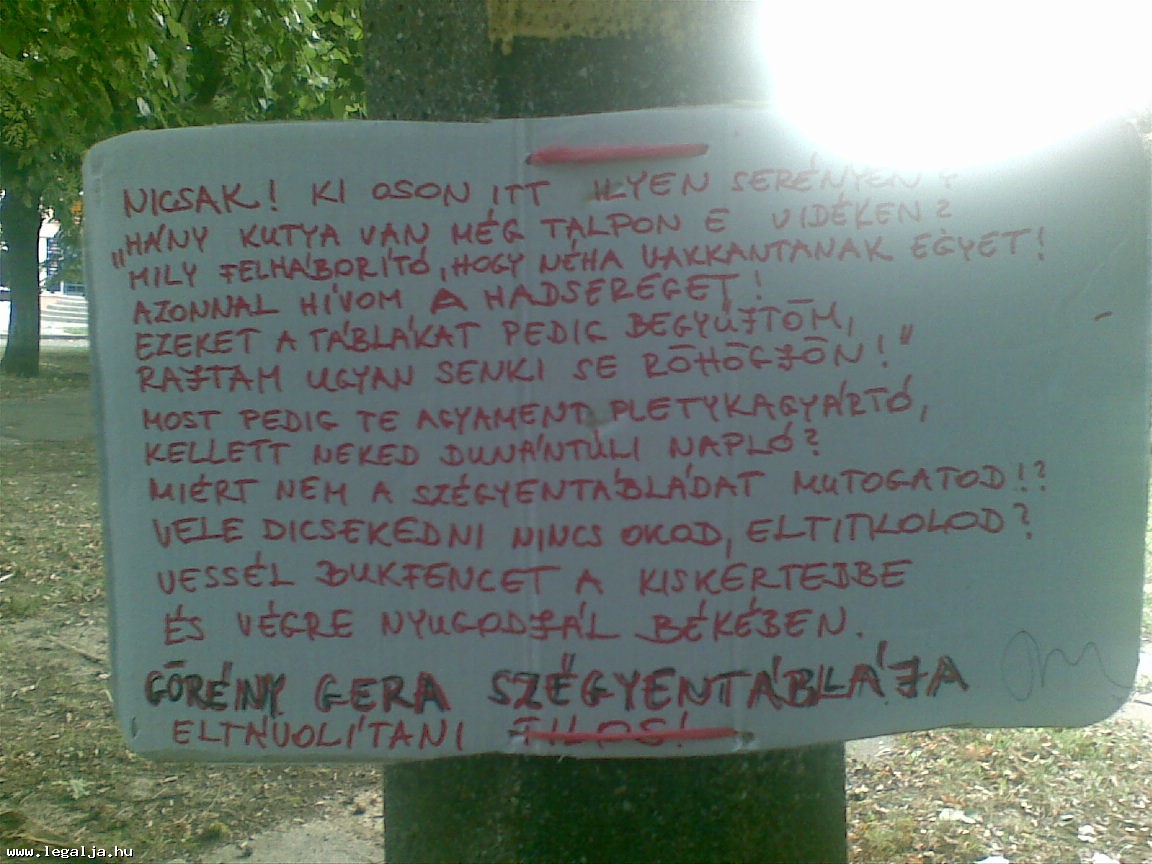 NICSAK! KI OSON ITT ILYEN SERÉNYEN?
"HÁNY KUTYA VAN MÉG TALPON E VIDÉKEN?
MILY FELHÁBORÍTÓ, HOGY NÉHA VAKKANTANAK EGYET!
AZONNAL HÍVOM A HADSEREGET!
EZEKET A TÁBLÁKAT PEDIG BEGYŰJTÖM,
RAJTAM UGYAN SENKI SE RÖHÖGJÖN!"
MOST PEDIG TE AGYAMENT PLETYKAGYÁRTÓ,
KELLETT NEKED DUNÁNTÚLI NAPLÓ?
MIÉRT NEM A SZÉGYENTÁBLÁDAT MUTOGATOD!?
VELE DICSEKEDNI NINCS OKOD, ELTITKOLOD?
VESSÉL BUKFENCET A KISKERTEDBE
ÉS VÉGRE NYUGODJÁL BÉKÉBEN.
GÖRÉNY GERA SZÉGYENTÁBLÁJA
ELTÁVOLÍTANI TILOS!
www.legalja.hu